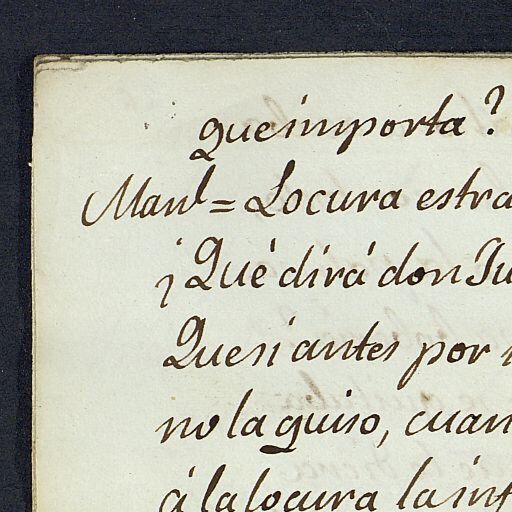 que importa?
Manl = Locura estra
¡Qué dirá don Ju
Que si antes por
no la quiso, cuan
á la locura la inf